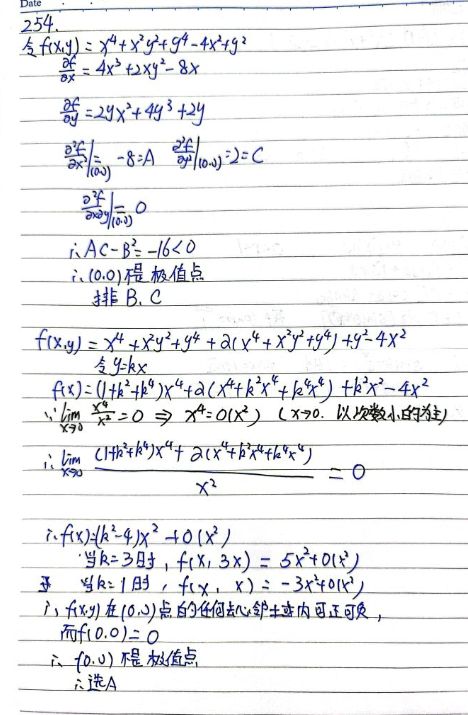 Date
254.
令f(x,y) = x⁴+x²y²+y⁴-4x²+y²
∂f/∂x = 4x³+2xy²-8x
∂f/∂y = 2yx²+4y³+2y
∂²f/∂x²|(0,0) = -8=A ∂²f/∂y²|(0,0) =2=C
∂²f/∂x∂y|(0,0) = 0
∴AC-B²=-16<0
∴(0,0)不是极值点
排B、C
f(x,y) = x⁴+x²y²+y⁴+2(x⁴+x²y²+y⁴)+y²-4x²
令y=kx
f(x)=(1+k²+k⁴)x⁴+2(x⁴+k²x⁴+k⁴x⁴)+k²x²-4x²
∵lim x→0 x⁴/x² = 0 ⇒ x⁴=o(x²) (x→0. 以次数小的为主)
∴lim x→0 ((1+k²+k⁴)x⁴+2(x⁴+k²x⁴+k⁴x⁴))/x² = 0
∴f(x)=(k²-4)x²+o(x²)
当k=3时, f(x,3x) = 5x²+o(x²)
当k=1时, f(x,x) = -3x²+o(x²)
∴f(x,y)在(0,0)点的任何去心邻域内可正可负,
而f(0,0)=0
∴(0,0)不是极值点
∴选A